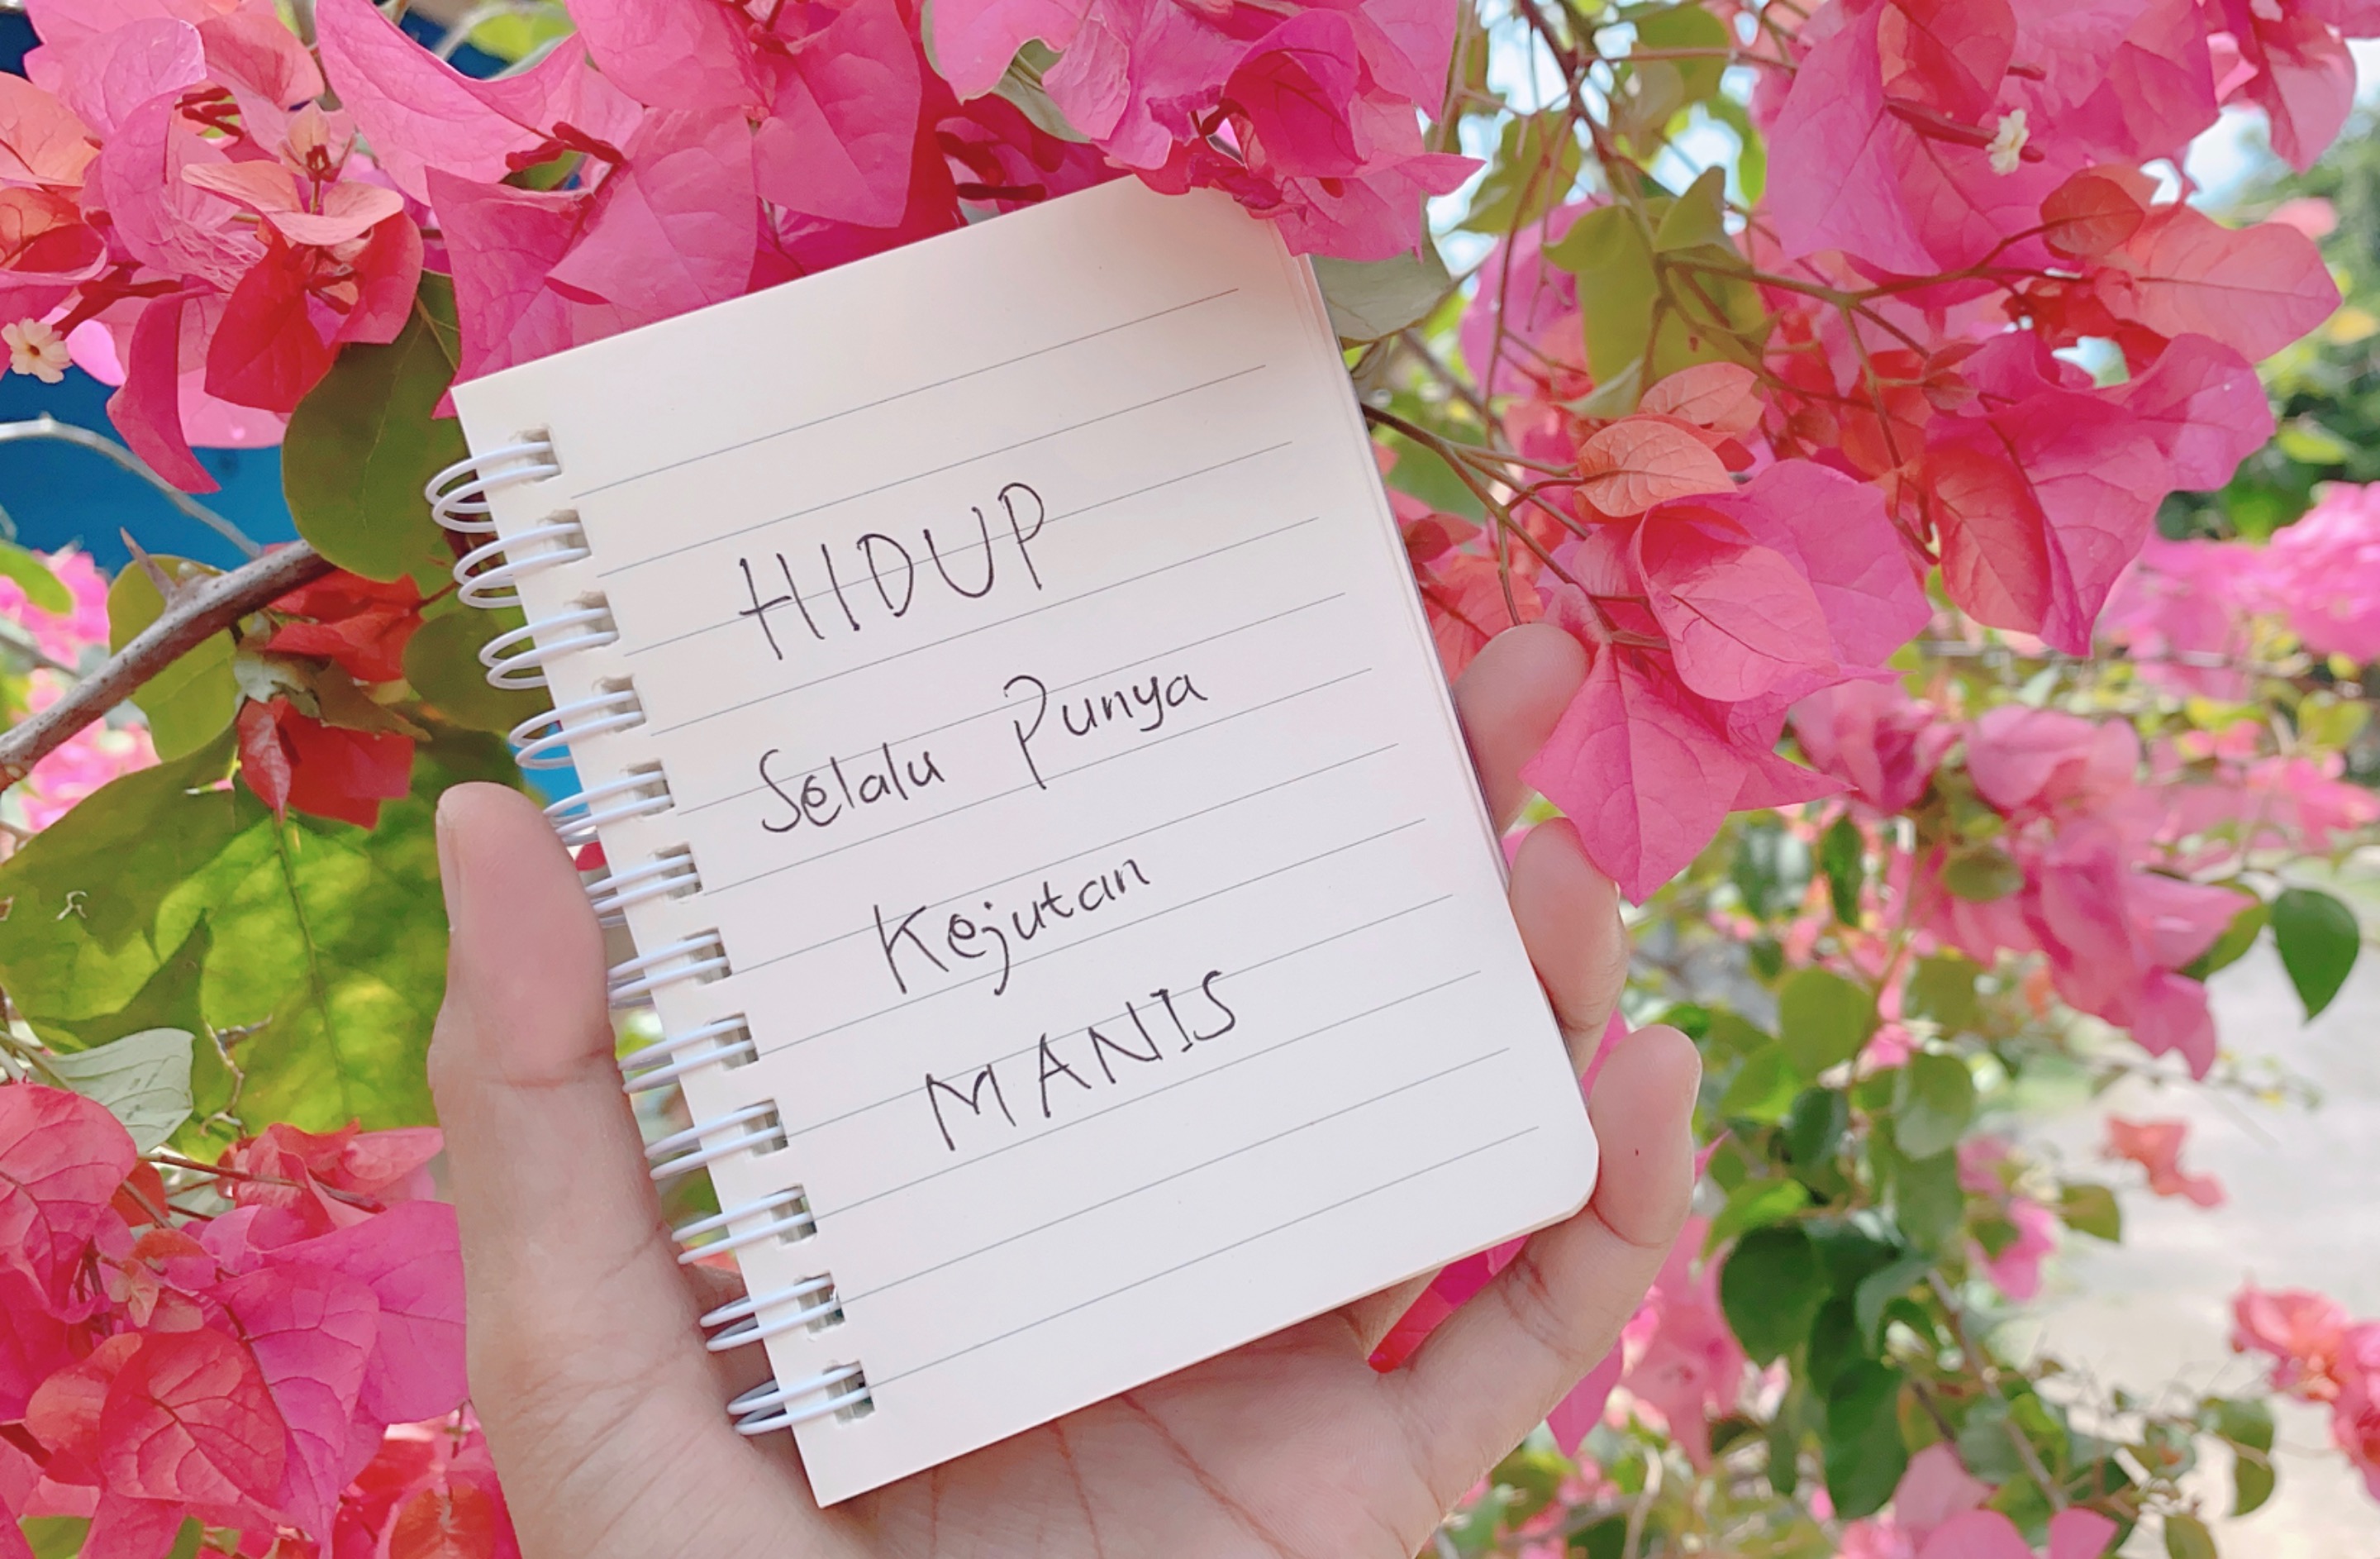 HIDUP
Selalu Punya
Kejutan
MANIS